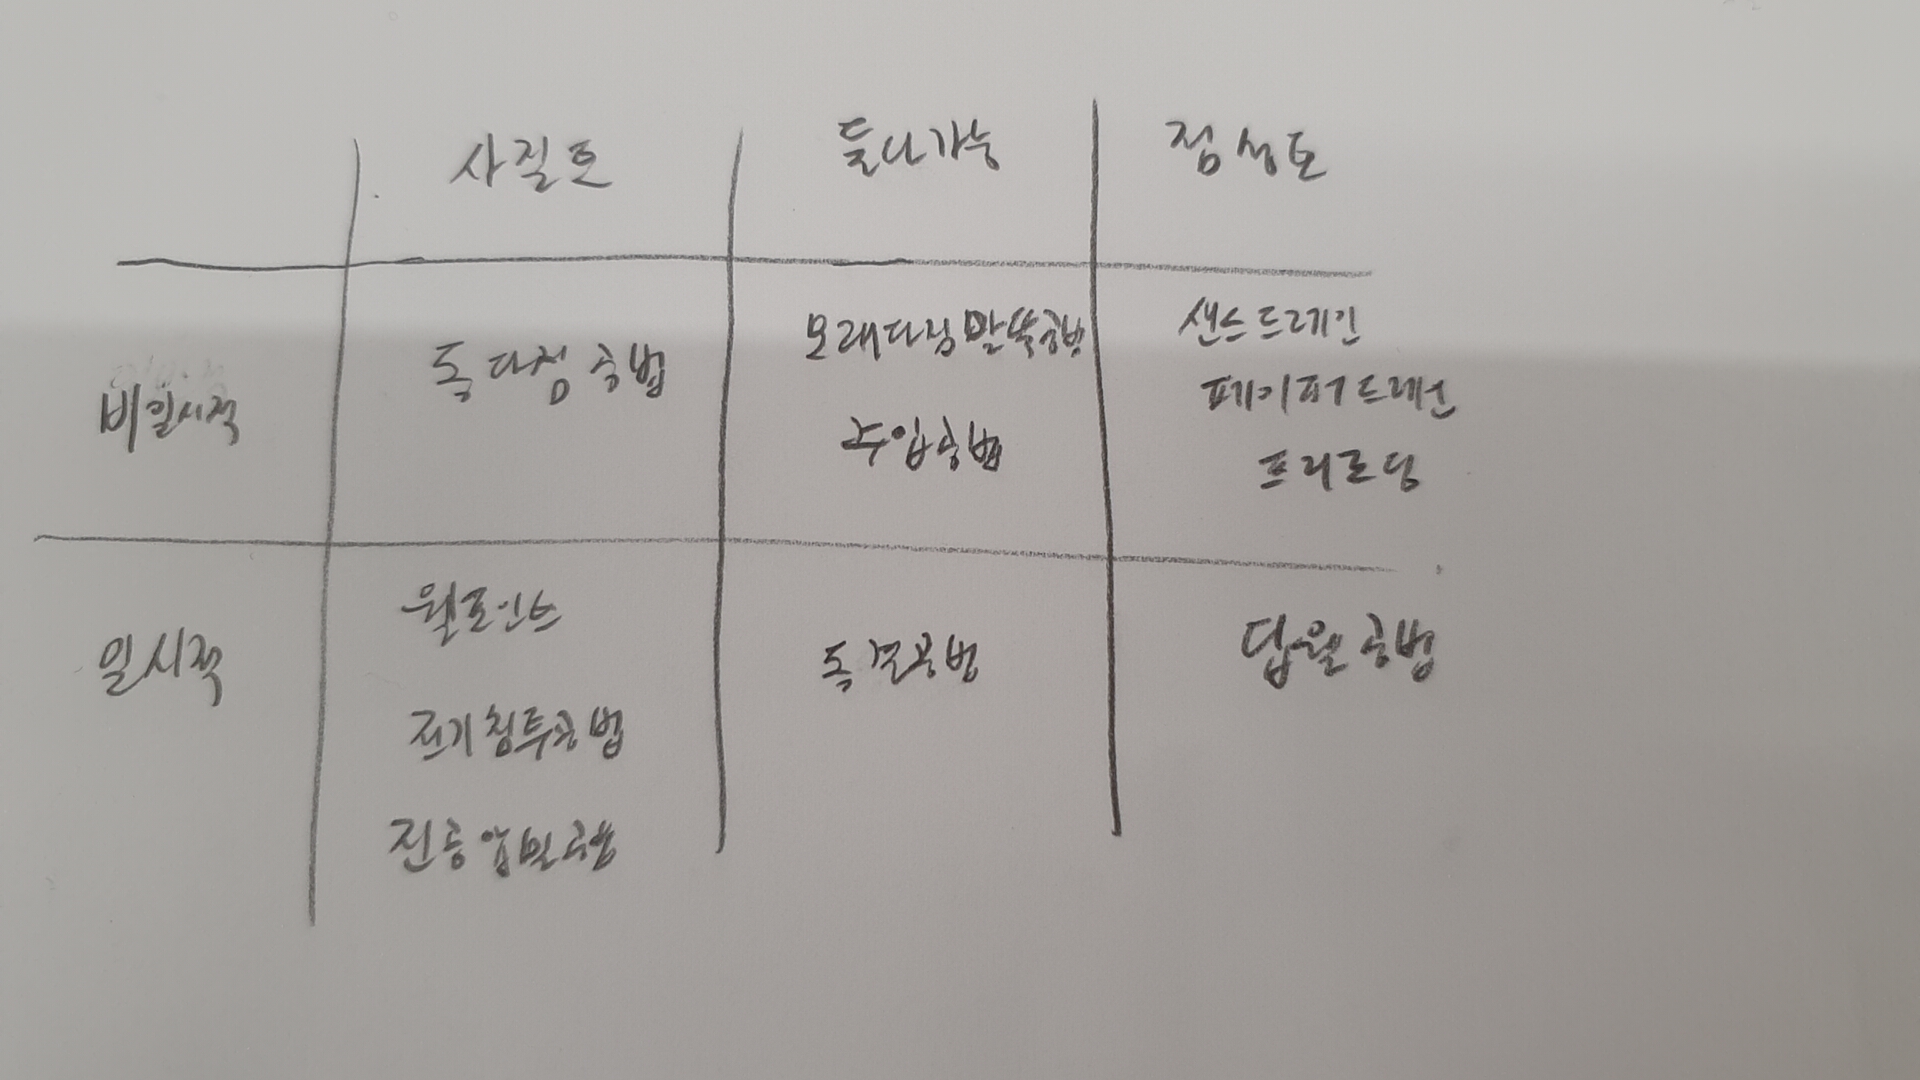 사질토 둘다가능 점성토
비일시적 동다짐공법 모래다짐말뚝공법 샌드드레인
주입공법 페이퍼드레인
프리로딩
일시적 웰포인트 동결공법 딥웰공법
전기침투공법
진공압밀공법